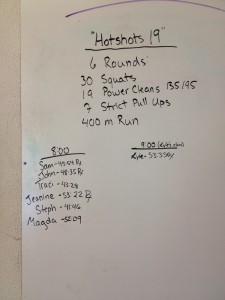 "Hotshots 19"
6 Rounds:
30 Squats
19 Power Cleans 135/95
7 Strict Pull Ups
400 m Run
8:00
Sam - 45:54 Rx
John - 48:35 Rx
Traci - 43:28
Jeanine - 53:22 Rx
Steph - 41:46
Magda - 58:09
9:00
Kyle - 53:33 Rx